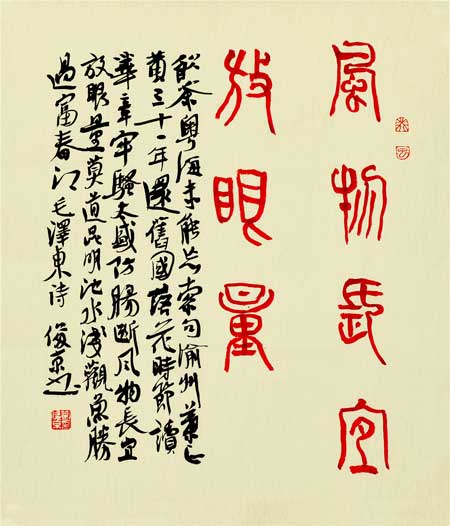 風物長宜
放眼量
飲茶粵海未能忘索句渝州葉正
黃三十一年還舊國落花時節讀
華章牢騷太盛防腸斷风物長宜
放眼量莫道昆明池水淺觀魚勝
過富春江毛澤東诗俊京书